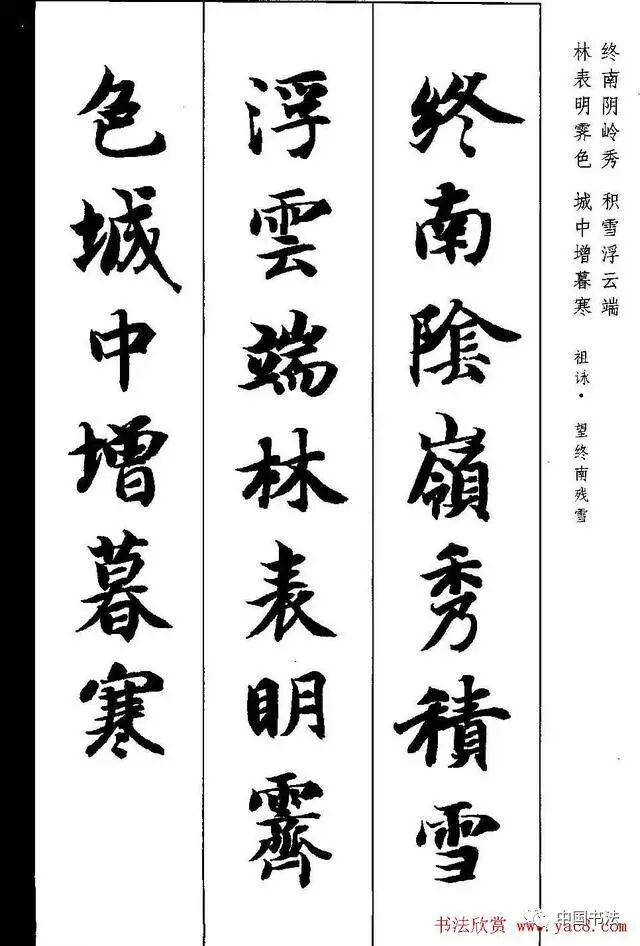 终南阴岭秀 积雪浮云端
林表明霁色 城中增暮寒 祖咏·望终南残雪
終南陰嶺秀積雪
浮雲端林表明霽
色城中增暮寒
中国书法
书法欣赏 www.yac8.com